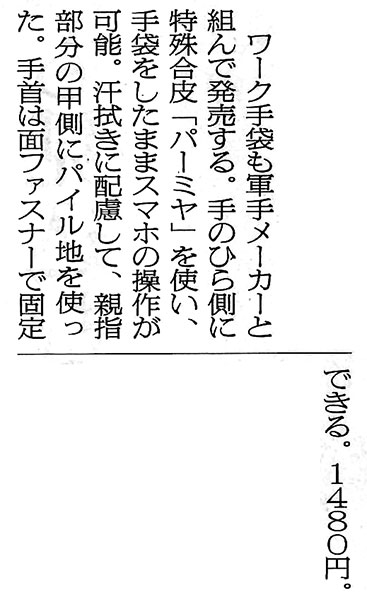 ワーク手袋も軍手メーカーと
組んで発売する。手のひら側に
特殊合皮「パーミヤ」を使い、
手袋をしたままスマホの操作が
可能。汗拭きに配慮して、親指
部分の甲側にパイル地を使っ
た。手首は面ファスナーで固定
できる。1480円。